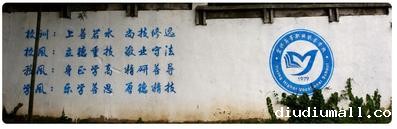 校训：上善若水 尚技修远
校风：立德重技 敬业守法
教风：身正学高 精研善导
学风：乐学善思 厚德精技
1979
diudiumall.com